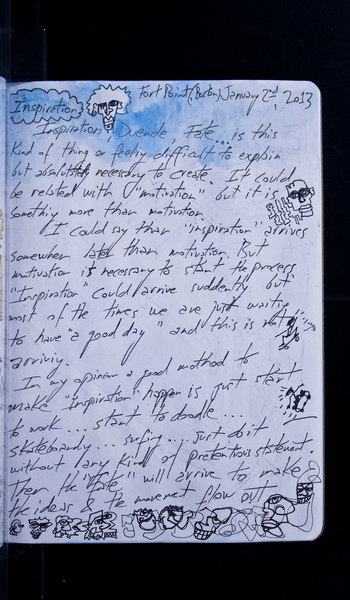 Fort Point (Boston) January 2nd, 2013
Inspiration
Inspiration, Duende Fate... is this
kind of thing or feeling difficult to explain
but absolutely necessary to create. It could
be related with "motivation" but it is
something more than motivation.
I could say than "inspiration" arrives
somewhen late than motivation. But
motivation is necessary to start the process
"Inspiration" could arrive suddenly but
most of the times we are just waiting
to have "a good day" and this is not
arriving.
In my opinion a good method to
make "Inspiration" happen is just start
to work... start to doodle....
skateboardy... surfing... just do it
without any kind of pretentious statement.
Then the "Fate" will arrive to make
the ideas & the movement flow out